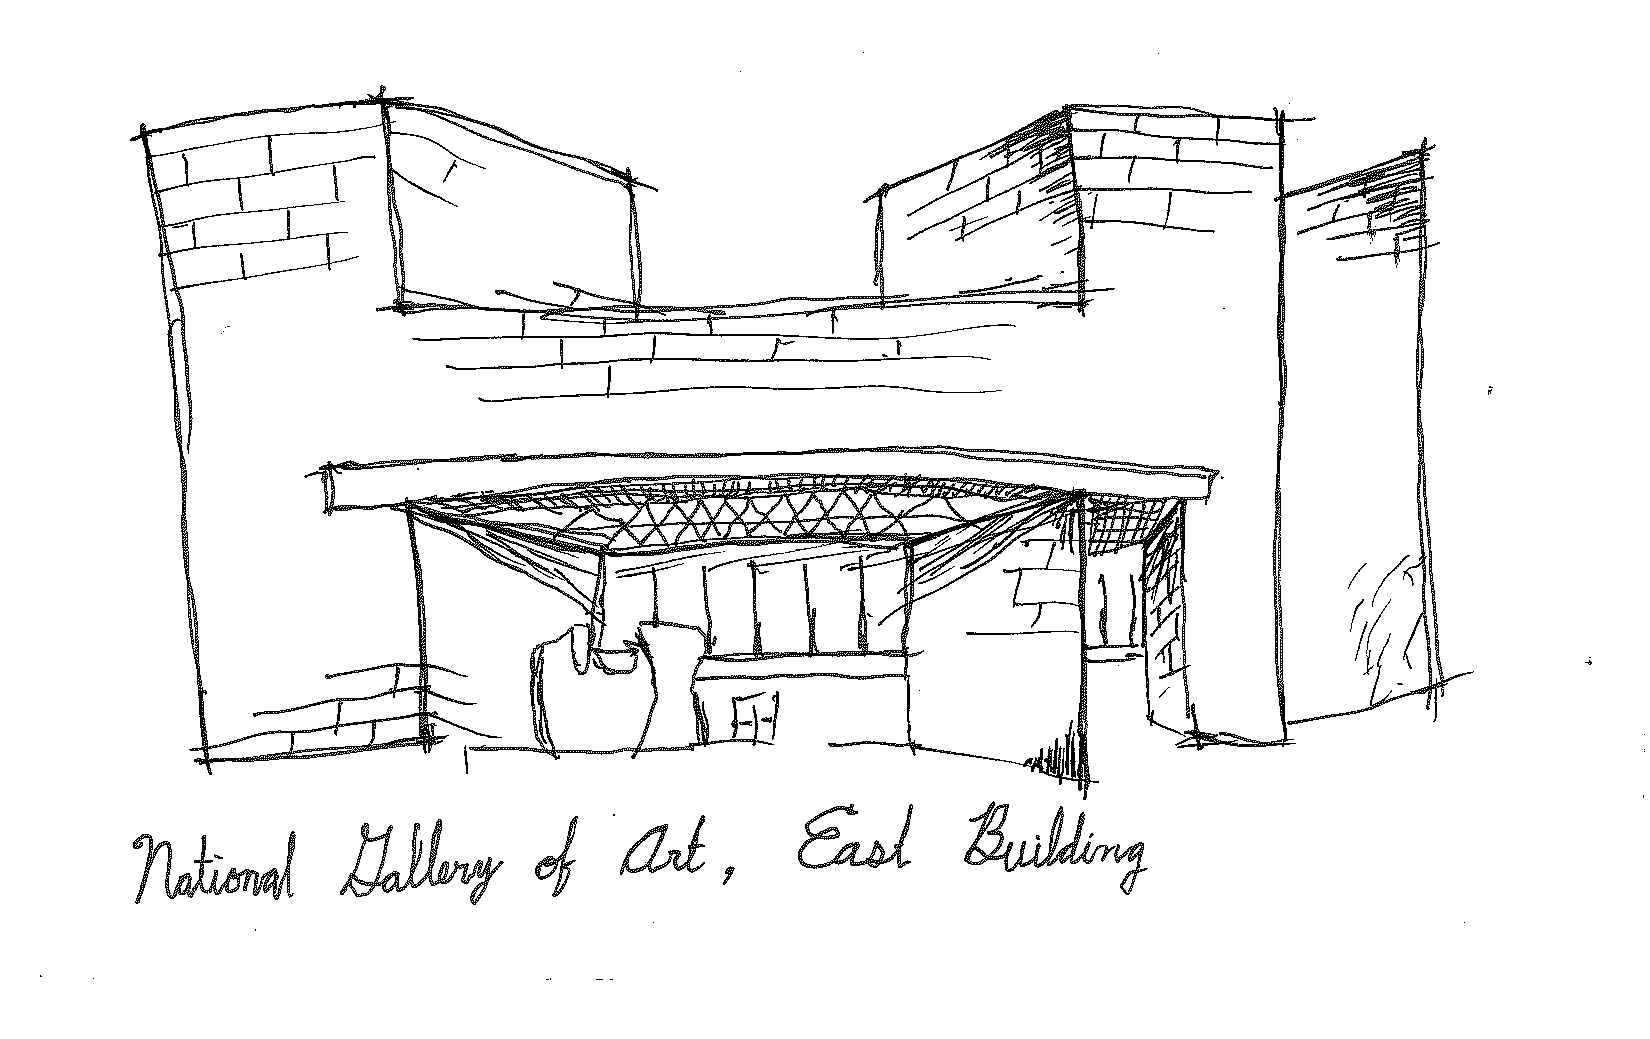 National Gallery of Art, East Building